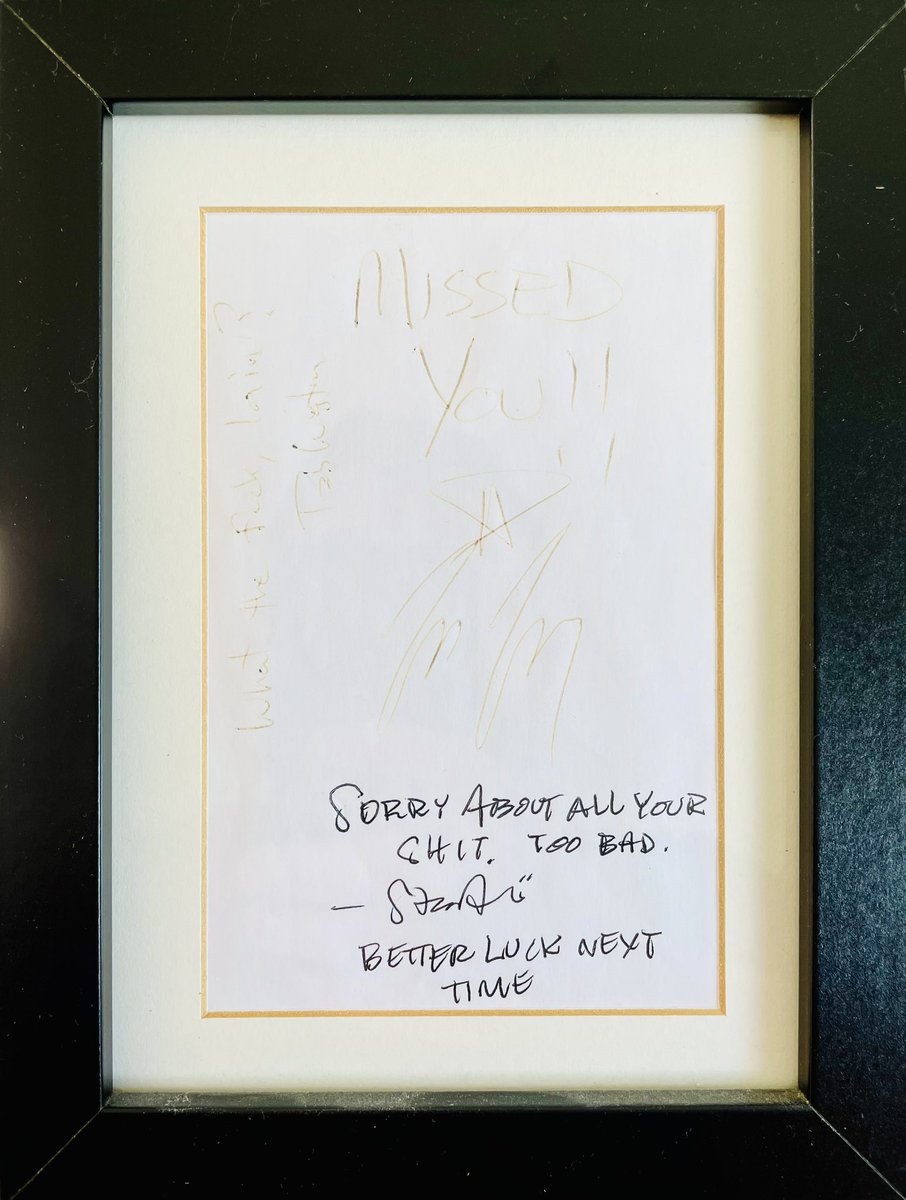 MISSED
YOU!!
What the fuck,
SORRY ABOUT ALL YOUR
SHIT. TOO BAD.
BETTER LUCK NEXT
TIME